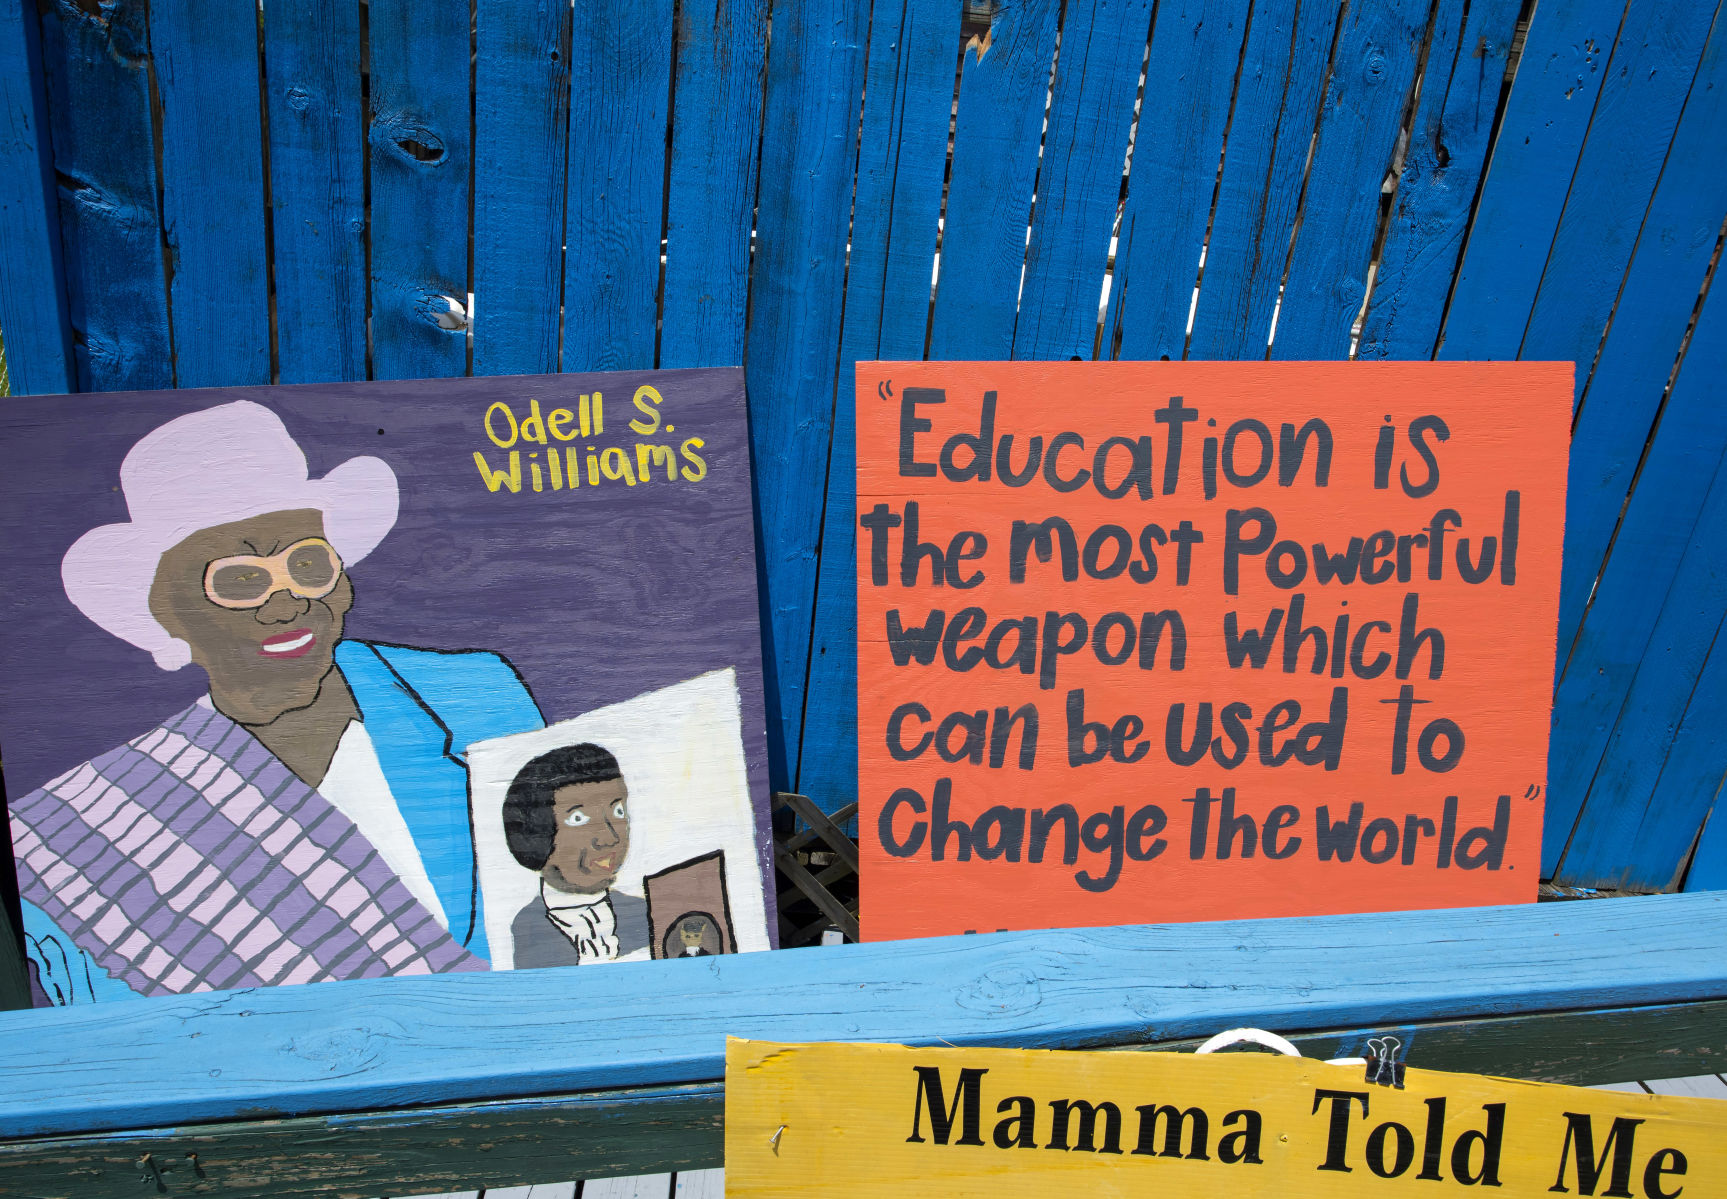 Odell S.
Williams
“Education is
the most Powerful
weapon which
can be used to
Change the world.”
Mamma Told Me